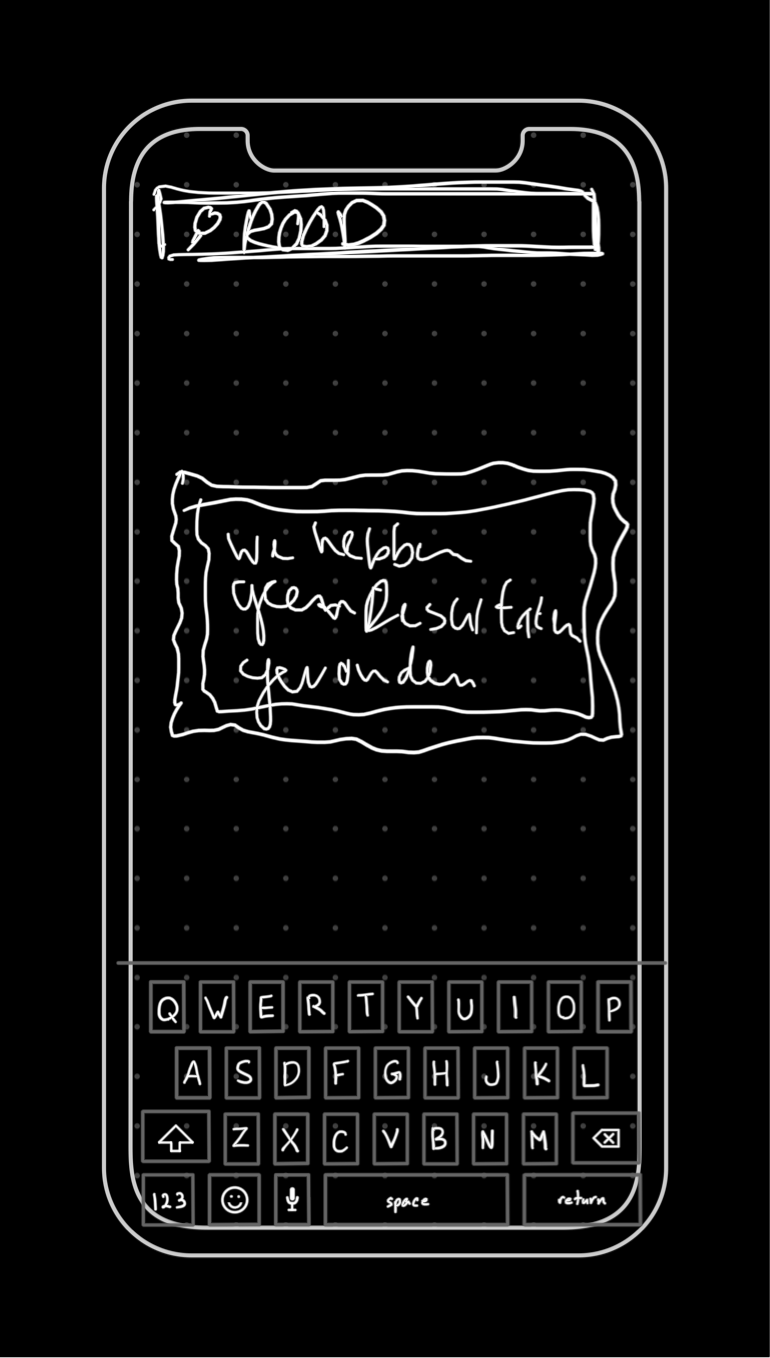 ROOD
We hebben
geen Resultaten
gevonden
Q W E R T Y U I O P
A S D F G H J K L
Z X C V B N M
123 space return